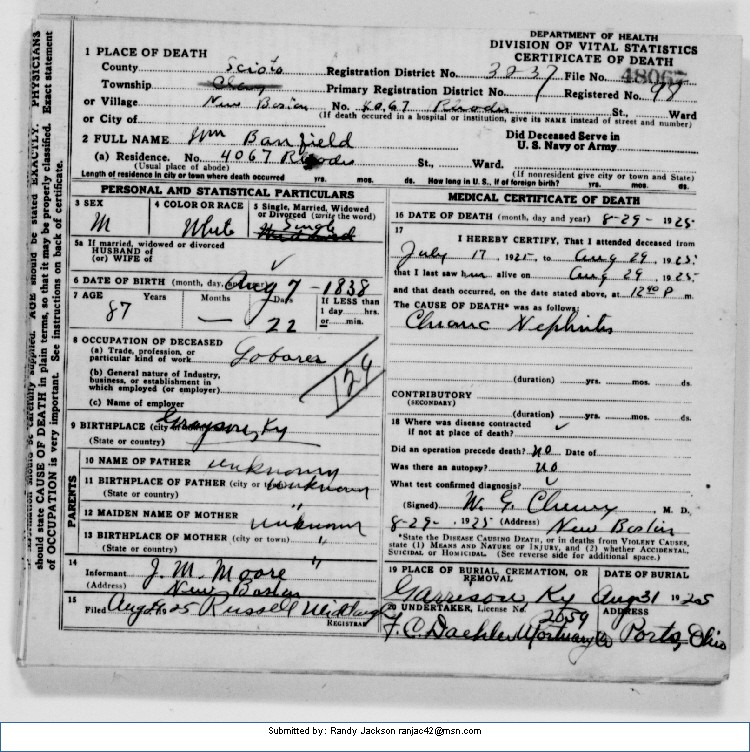 DEPARTMENT OF HEALTH
DIVISION OF VITAL STATISTICS
CERTIFICATE OF DEATH
1 PLACE OF DEATH
County Scioto Registration District No. 3237 File No. 48067
Township Clay Primary Registration District No. Registered No. 98
or Village New Boston No. 4067 Rhodes St., Ward
or City of (If death occured in a hospital or institution, give its NAME instead of street and number)
2 FULL NAME Wm Banfield Did Deceased Serve in U. S. Navy or Army
(a) Residence. No. 4067 Rhodes St., Ward.
(Usual place of abode) (If nonresident give city or town and State)
Length of residence in city or town where death occurred yrs. mos. ds. How long in U. S., if of foreign birth? yrs. mos. ds.
PERSONAL AND STATISTICAL PARTICULARS
3 SEX M
4 COLOR OR RACE White
5 Single, Married, Widowed or Divorced (write the word) Single
5a If married, widowed or divorced
HUSBAND of
(or) WIFE of
6 DATE OF BIRTH (month, day, Aug 7 - 1838
7 AGE Years Months Days If LESS than
87 — 22 1 day hrs.
or min.
8 OCCUPATION OF DECEASED
(a) Trade, profession, or
particular kind of work
(b) General nature of Industry,
business, or establishment in
which employed (or employer)
(c) Name of employer
129
9 BIRTHPLACE (city Grayson, Ky
(State or country)
PARENTS
10 NAME OF FATHER unknown
11 BIRTHPLACE OF FATHER (city or unknown
(State or country)
12 MAIDEN NAME OF MOTHER unknown
13 BIRTHPLACE OF MOTHER (city or town) "
(State or country) "
14 Informant J. M. Moore
(Address) New Boston
15 Filed Aug 25 Russell
REGISTRAR
MEDICAL CERTIFICATE OF DEATH
16 DATE OF DEATH (month, day and year) 8-29- 1925
17 I HEREBY CERTIFY, That I attended deceased from
July 17, 1925 to Aug 29, 1925
that I last saw him alive on Aug 29, 1925
and that death occurred, on the date stated above, at 12 40 P m.
The CAUSE OF DEATH* was as follows:
Chronic Nephritis
(duration) yrs. mos. ds.
CONTRIBUTORY
(SECONDARY)
(duration) yrs. mos. ds.
18 Where was disease contracted
if not at place of death?
Did an operation precede death? no Date of
Was there an autopsy? no
What test confirmed diagnosis?
(Signed) W. G. M. D.
8-29-, 1925 (Address) New Boston
*State the DISEASE CAUSING DEATH, or in deaths from VIOLENT CAUSES,
state (1) MEANS AND NATURE OF INJURY, and (2) whether ACCIDENTAL,
SUICIDAL or HOMICIDAL. (See reverse side for additional space.)
19 PLACE OF BURIAL, CREMATION, OR REMOVAL
Garrison Ky
DATE OF BURIAL
Aug 31 1925
20 UNDERTAKER, License No. 2059
F. C. Daehler Mortuary Co
ADDRESS
Ports, Ohio
should be carefully supplied. AGE should be stated EXACTLY. PHYSICIANS
should state CAUSE OF DEATH in plain terms, so that it may be properly classified. Exact statement
of OCCUPATION is very important. See instructions on back of certificate.
Submitted by: Randy Jackson ranjac42@msn.com